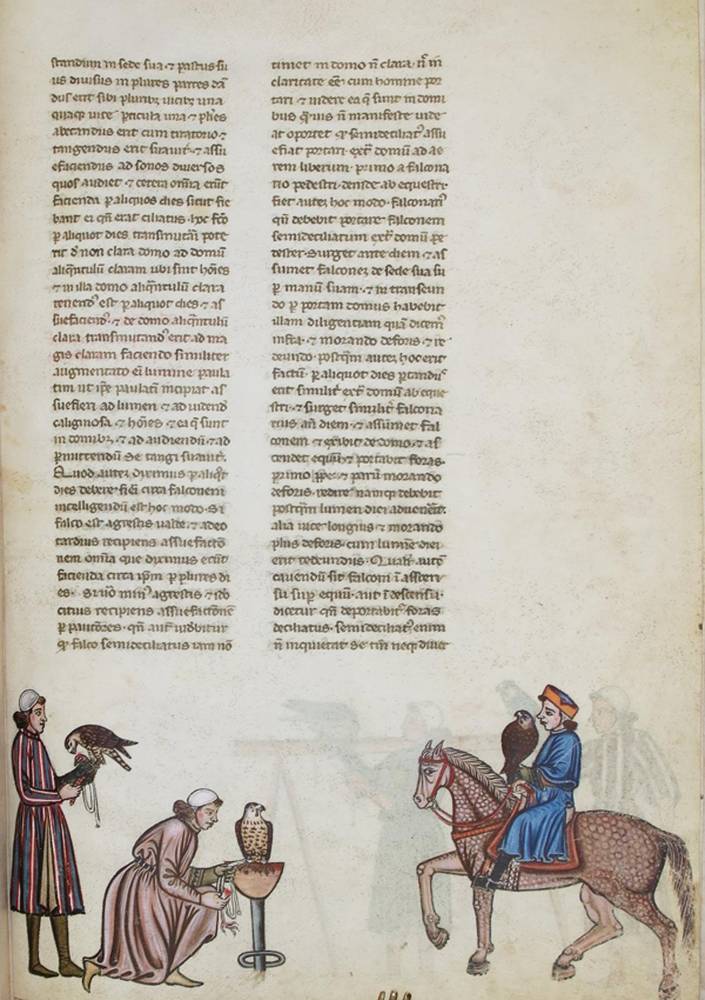 standium in sede sua ⁊ pastus su
us diuisus in plures partes dā
dus erit sibi pluribꝫ uicibꝫ una
quaqꝫ uice ꝑticula una ⁊ pl̄ies
abetandus erit cum tiratorio ⁊
tangendus erit suauit̄ ⁊ assu
efaciendus ad sonos diuersos
quos audiet ⁊ cetera om̄ia erūt
facienda ꝑ aliquos dies sicut fie
bant ei qn̄ erat ciliatus hoc fc̄o
ꝑ aliquot dies transmutari pote
rit de non clara domo ad domū
aliqn̄tulū claram ubi sint hōies
⁊ in illa domo aliqn̄tulū clara
tenend᾿ est ꝑ aliquot dies ⁊ as
suefaciend᾿ ⁊ de domo aliqn̄tulū
clara transmutand᾿ erit ad ma
gis claram faciendo similiter
augmentato ei lumine paula
tim ut ip̄e paulati incipiat as
suefieri ad lumen ⁊ ad uidend
caliginosa ⁊ hōies ⁊ ea q̄ sunt
in domibꝫ ⁊ ad audiendū ⁊ ad
ꝑmittendū se tangi suauit̄.
Quod autē diximus ꝑ aliqt̄
dies debere fieri circa falconem
intelligendū est hoc modo. Si
falco est agrestis ualde ⁊ adeo
tardius recipiens assuefactō
nem omnia que diximus erūt
facienda circa ipm̄ ꝑ plures di
es. Si uō min᾿ agrestis ⁊
citius recipiens assuefactōnē
ꝑ pautōres. qn̄ aut̄ uidbitur
ꝙ falco semideciliatus iam nō
timet in domo n̄ clara n̄ in
claritate eē cum homine por
tari ⁊ uidere ea q̄ sunt in domi
bus q̄uis n̄ manifeste uide
at oportet ꝙ semideciliat᾿ assu
efiat portari ext᷑ domū ad ae
rem liberum primo a falcona
rio pedestri deinde ab equestri
fiet autē hoc modo. falconari᾿
qn̄ debebit portare falconem
semideciliatum ext᷑ domū pe
dester surget ante diem ⁊ as
sumet falconeꝫ de sede sua su
ꝑ manū suam ⁊ in transeun
do ꝑ portam domus habebit
illam diligentiam quā dicem᾿
infra ⁊ morando deforis ⁊ re
deundo. postqm̄ autē hoc erit
factū ꝑ aliquot dies portandus
erit similit̄ ext᷑ domū ab eque
stri ⁊ surget similit̄ falcona
rius an̄ diem ⁊ assumet fal
conem ⁊ exibit de domo ⁊ as
cendet equū ⁊ portabit foras
primo ꝓpe ⁊ parū morando
deforis redire namqꝫ debebit
postqm̄ lumen diei aduenerit.
alia uice longius ⁊ morando
plus deforis cum lumine diei
erit redeundus. Qualit̄ autē
cauendū sit falconi ī ascen
su suꝑ equū aut ī descensu
dicetur qn̄ deportabit᾿ foras
deciliatus. semideciliat᾿ enim
n̄ inquietat se tm̄ neqꝫ diuer